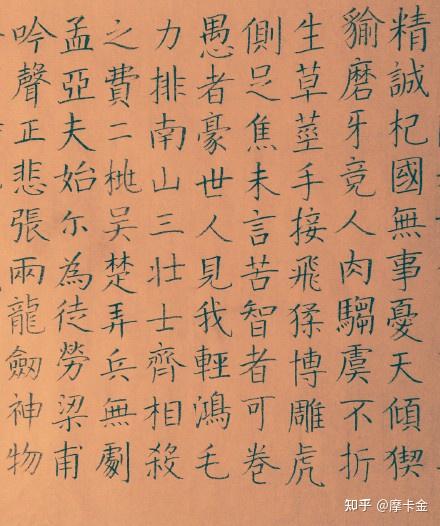 精誠杞國無事憂天傾猰
貐磨牙竟人肉騶虞不折
生草莖手接飛猱博雕虎
側足焦未言苦智者可卷
愚者豪世人見我輕鴻毛
力排南山三壯士齊相殺
之費二桃吴楚弄兵無劇
孟亞夫始尔為徒勞梁甫
吟聲正悲張兩龍劒神物
知乎 @摩卡金